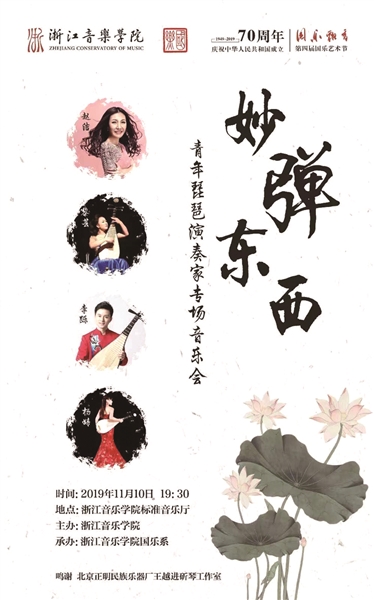 浙江音樂學院
ZHEJIANG CONSERVATORY OF MUSIC
1949-2019 70周年
庆祝中华人民共和国成立
第四届国乐艺术节
妙弹东西
青年琵琶演奏家专场音乐会
李曍
杨婷
时间: 2019年11月10日 19: 30
地点: 浙江音乐学院标准音乐厅
主办: 浙江音乐学院
承办: 浙江音乐学院国乐系
鸣谢 北京正明民族乐器厂王越进斫琴工作室